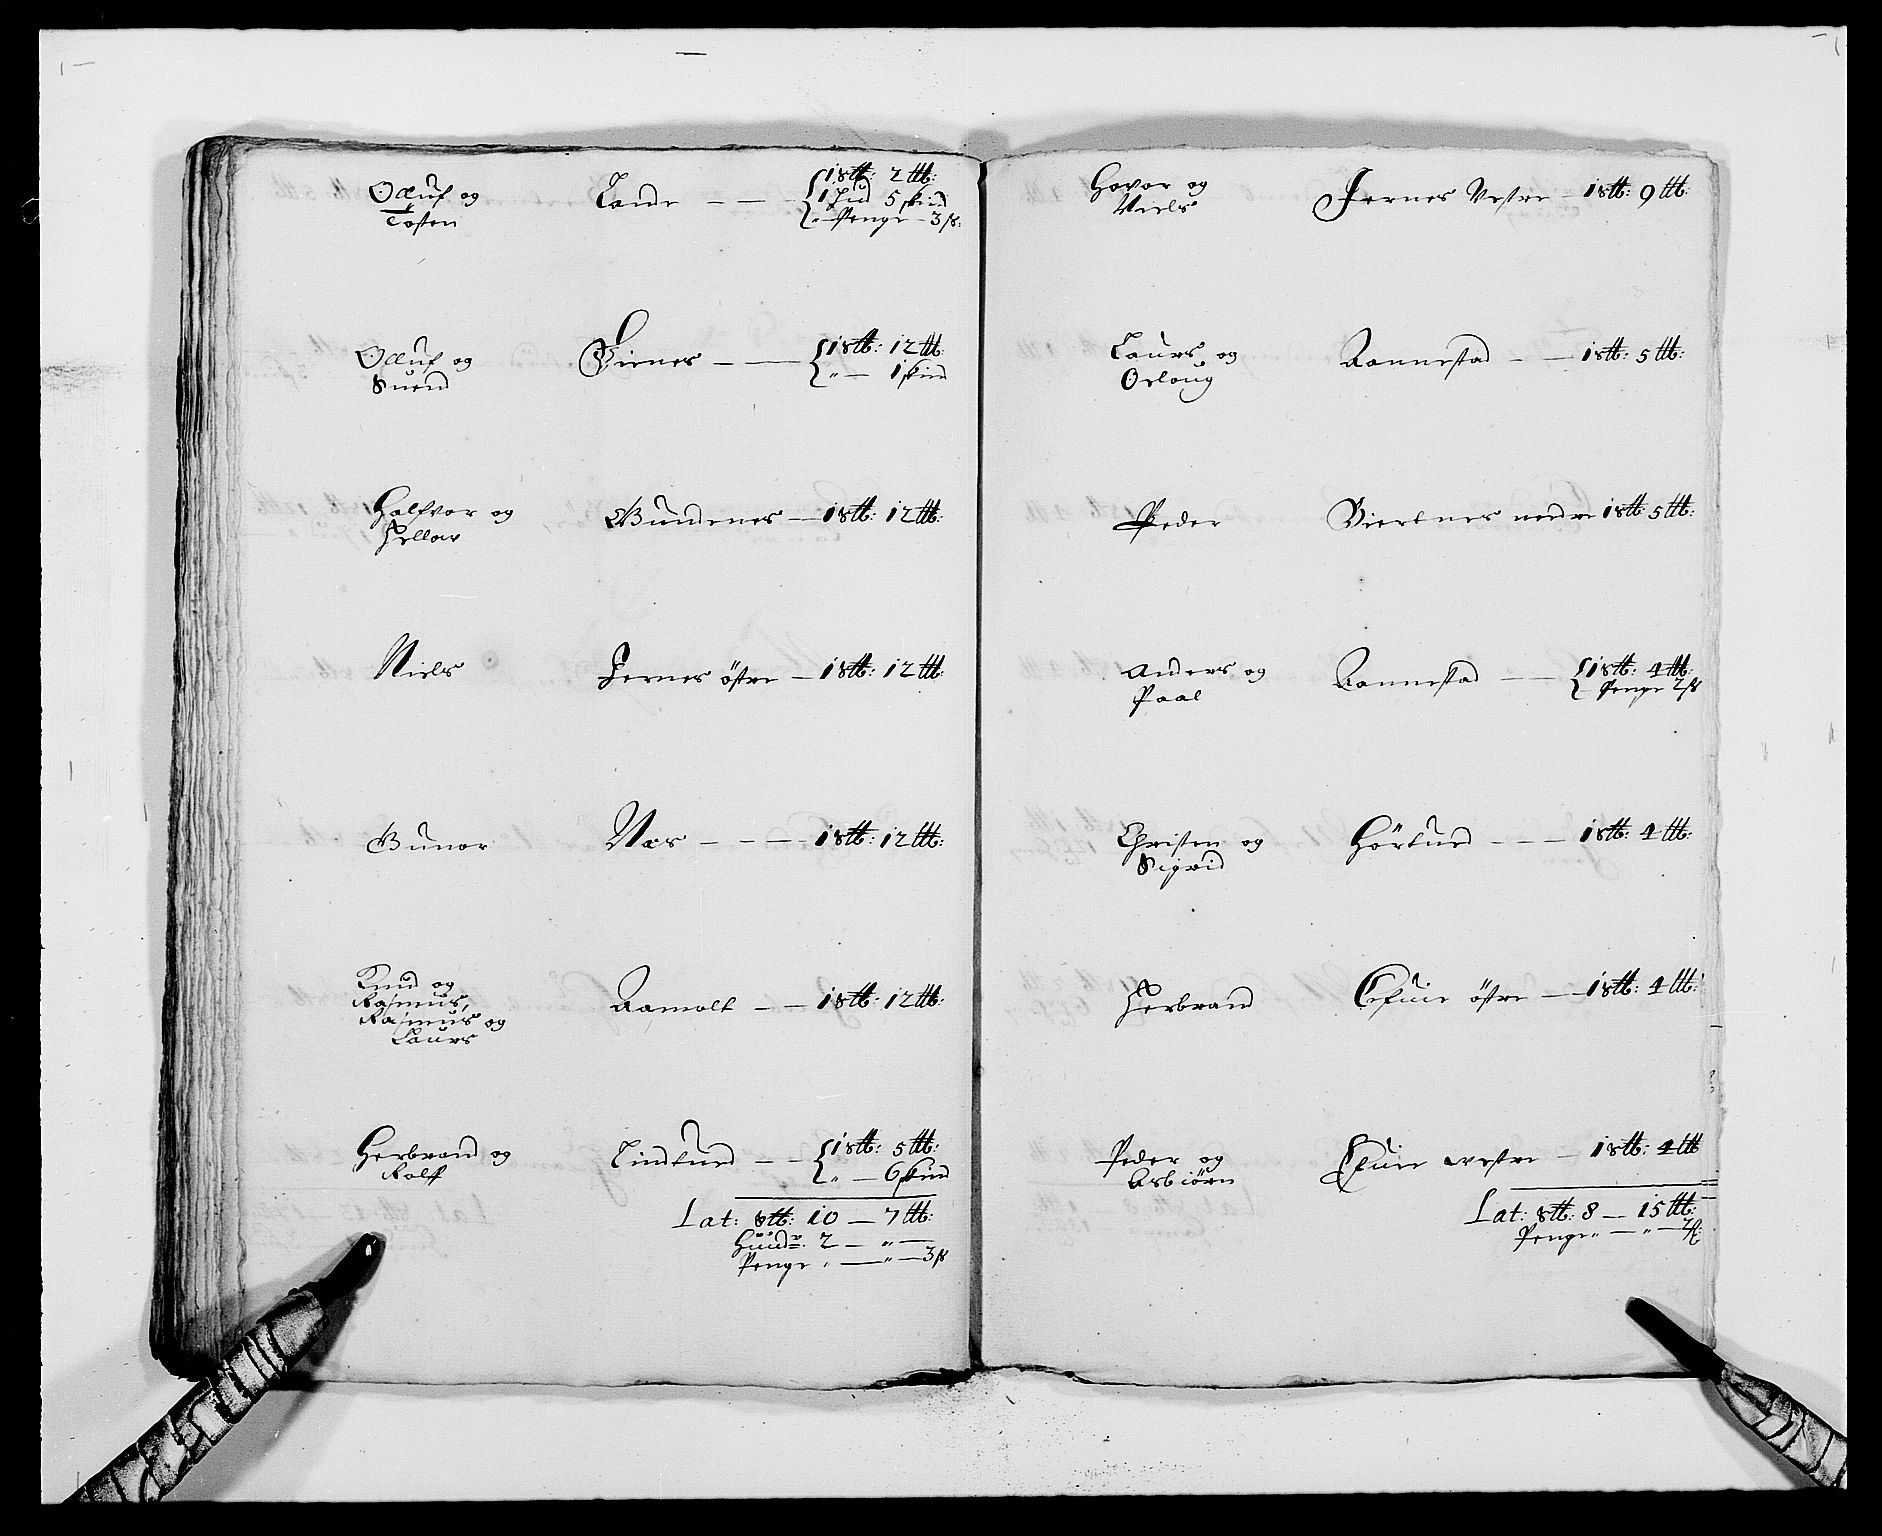 Olluf og
Tosten
Lande — — 1 stt: 2 tt:
1 Hud 5 skind
„ Penge — 3 ß:
Olluf og
Suend
Birnes — — 1 stt: 12 tt:
„ — 1 skind
Halfvor og
Hellov
Gundenes — 1 stt: 12 tt:
Niels
Jernes östre — 1 stt: 12 tt:
Gunar
Næs — — — 1 stt: 12 tt:
Knud og
Rasmus,
Rasmus og
Laurs
Aamolt — — 1 stt: 12 tt:
Herbrand og
Rolff
Lindtued — — 1 stt: 5 tt:
„ — 6 skind
Lat: stt: 10 — 7 tt:
Huudr. 2 — „ —
Penge „ — „ — 3 ß
Hovor og
Niels
Jernes Vestre — 1 stt: 9 tt:
Laurs og
Orloug
Aannestad — — 1 stt: 5 tt:
Peder
Biertnes nedre 1 stt 5 tt:
Anders og
Paal
Aannestad — — 1 stt: 4 tt:
Penge 2 ß
Christen og
Sigrid
Hörtued — — — 1 stt: 4 tt:
Herbrand
östre — 1 stt: 4 tt:
Peder og
Asbiörn
westre — 1 stt: 4 tt
Lat: stt: 8 — 15 tt:
Penge „ — „ — 2 ß: